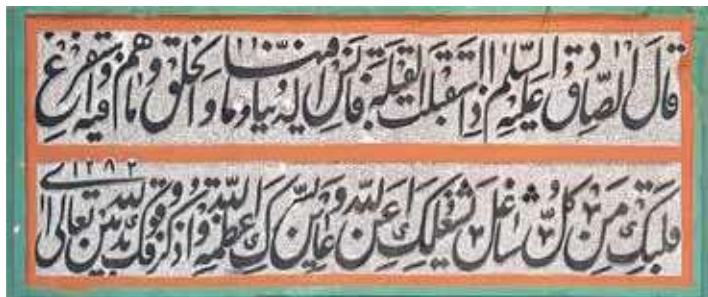 قال الصادق عليه السلم اذا استقبلت القبلة فانس الدنيا وما فيها والخلق وما هم فيه واستفرغ
قلبك من كل شاغل يشغلك عن الله وعاين بسرك عظمة الله واذكر وقوفك بين يدي الله تعالى ١٢٨٢